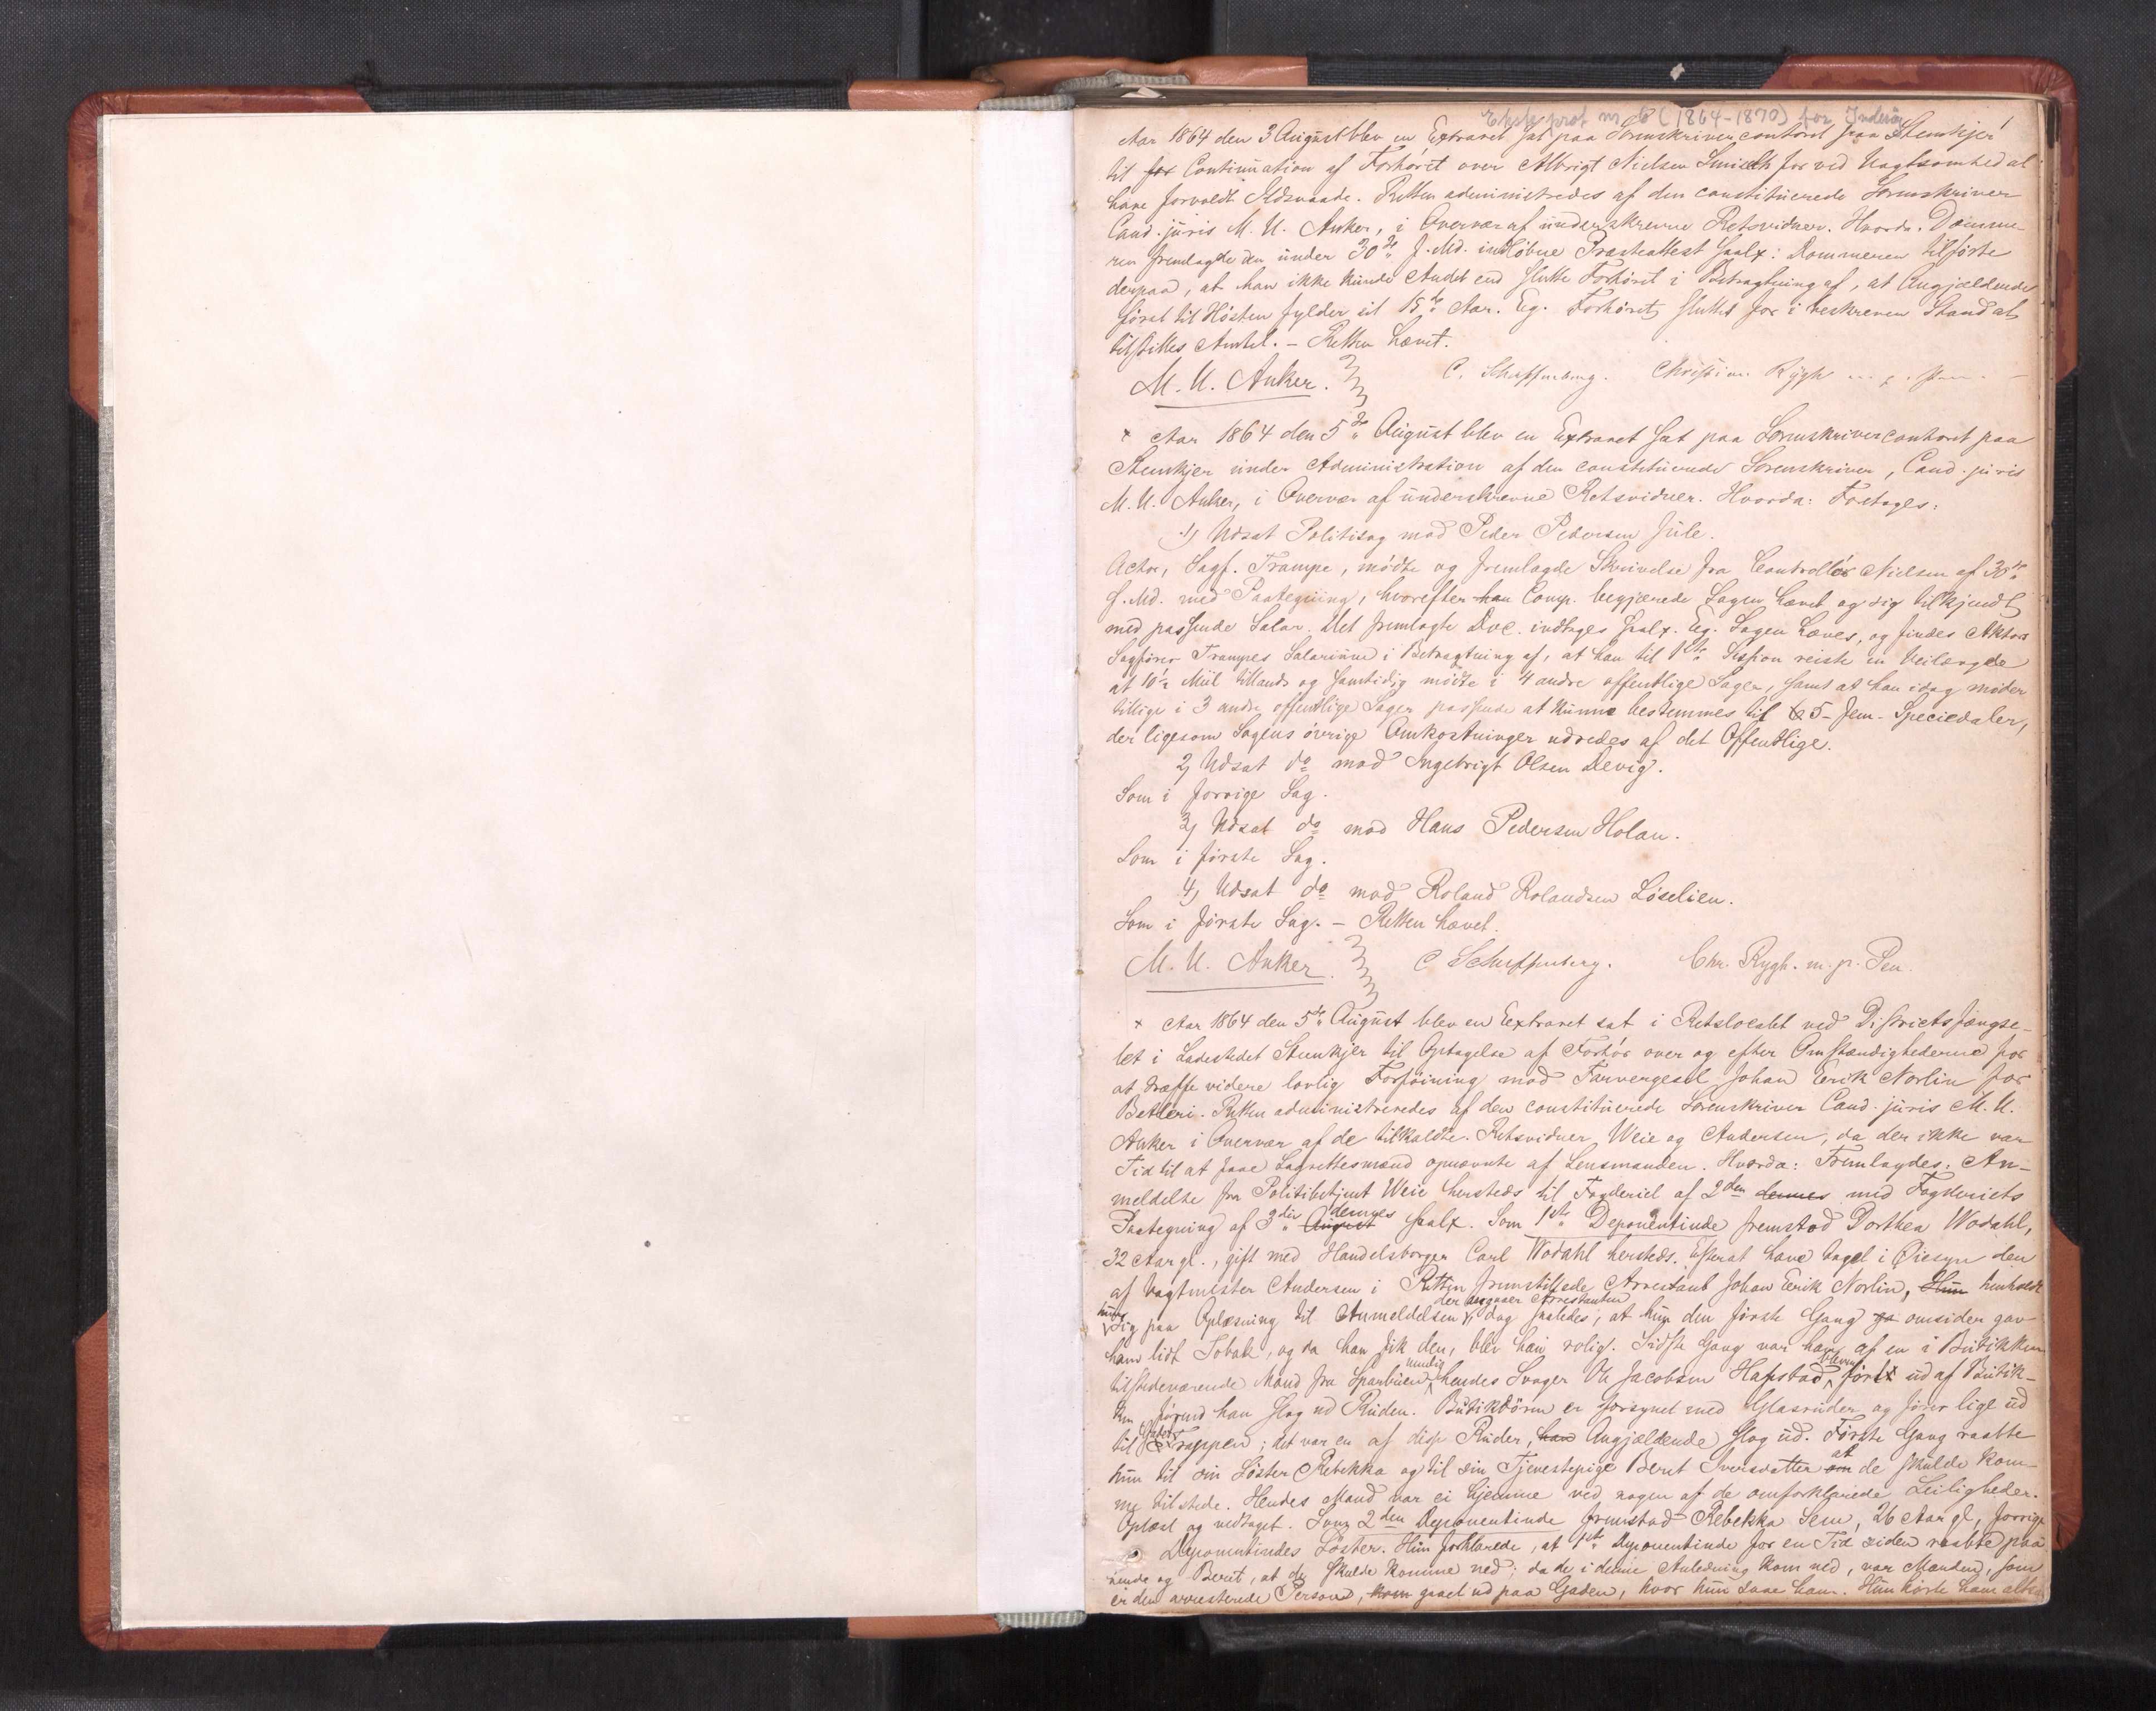 Ekstr.prot nr. 6 (1864-1870) for Inderøy
1
Aar 1864 den 3 August blev en Extraret sat paa Sorenskrivercontoret paa Stenkjer
til for Continuation af Forhøret over Albrigt Nielsen Smiseth for ved Uagtsomhed at
have forvoldt Ildsvaade. Retten administredes af den constituerede Sorenskriver
Cand. juris M. U. Anker, i Overvær af underskrevne Retsvidner. Hvorda: Domme-
ren fremlagde den under 30te f. Md. indløbne Præsteattest saalx: Dommeren tilførte
derpaa, at han ikke kunde Andet end slutte Forhøret i Betragtning af, at Angjældende
først til Høsten fylder sit 15de Aar. Eg. Forhøret sluttet for i beskreven Stand at
tilstilles Amtet. - Retten hævet.
M. U. Anker. C. Scheffenberg. Christian Rygh
+ Aar 1864 den 5te August blev en Extraret sat paa Sorenskrivercontoret paa
Stenkjer under Administration af den constituerede Sorenskriver, Cand. juris
M. U. Anker, i Overvær af underskrevne Retsvidner. Hvorda: Foretages:
1) Udsat Politisag mod Peder Pedersen Jule.
Actor, Sagf. Trampe, mødte og fremlagde Skrivelse fra Controllør Nielsen af 30te
f. Md. med Paategning, hvorefter han Comp. begjærede Sagen hævet og sig tilkjendt
med passende Salar. Det fremlagte Doc. indtages saalx. Eg. Sagen hæves, og findes Aktors
Sagfører Trampes Salarium i Betragtning af, at han til 1ste Session reiste en Veilængde
af 10½ Miil tillands og samtidig mødte i 4 andre offentlige Sager, samt at han idag møder
tillige i 3 andre offentlige Sager passende at kunne bestemmes til 5 - fem - Speciedaler,
der ligesom Sagens øvrige Omkostninger udredes af det Offentlige.
2) Udsat do mod Ingebrigt Olsen Devig.
Som i forrige Sag.
3) Udsat do mod Hans Pedersen Holan.
Som i første Sag.
4) Udsat do mod Roland Rolandsen Løselien.
Som i første Sag. - Retten hævet.
M. U. Anker. C Scheffenberg. Chr. Rygh. m. p. Pen.
+ Aar 1864 den 5te August blev en Eextraret sat i Retslocalet ved Districtsfængse-
let i Ladestedet Stenkjer til Optagelse af Forhør over og efter Omstændighederne for
at træffe videre lovlig Forføining mod Farvergesel Johan Erik Norlin for
Betleri. Retten administreredes af den constituerede Sorenskriver Cand. juris M. U.
Anker i Overvær af de tilkaldte Retsvidner Weie og Andersen, da der ikke var
Tid til at faae Lagrettesmænd opnævnte af Lensmanden. Hvorda: Fremlagdes: An-
meldelse fra Politibetjent Weie hersteds til Fogderiet af 2den dennes med Fogderiets
Paategning af 3die August dennes saalx. Som 1ste Deponentinde fremstod Dorthea Wodahl,
32 Aar gl., gift med Handelsborger Carl Wodahl hersteds. Efterat have taget i Øiesyn den
af Vagtmester Andersen i Retten fremstillede Arrestant Johan Erik Norlin, Hun henholdt
hun sig paa Oplæsning til Anmeldelsen, der angaaer Arrestanten, dog saaledes, at hun den første Gang omsider gav
ham lidt Tobak, og da han fik den, blev han rolig. Sidste Gang var han af en i Butikken
tilstedeværende Mand fra Sparbuen, nemlig hendes Svager Ole Jacobsen Hafstad, bleven ført ud af Butik-
ken, førend han slog ud Ruden. Butikdøren er forsynet med Glasruder og fører lige ud
til Gadetrappen; det var en af disse Ruder, han Angjældende slog ud. Første Gang raabte
hun til sin Søster Rebekka og til sin Tjenestepige Beret Iversdatter om at de skulde kom-
me tilstede. Hendes Mand var ei hjemme ved nogen af de omforklarede Leiligheder.
Oplæst og vedtaget. Som 2den Deponentinde fremstod Rebekka Sem, 26 Aar gl, forrige
Deponentindes Søster. Hun forklarede, at 1ste Deponentinde for en Tid siden raabte paa
hende og Berit, at de skulde komme ned; da de i denne Anledning kom ned, var Manden, som
er den arresterede Person, kom gaaet ud paa Gaden, hvor hun saae ham. Hun hørte ham